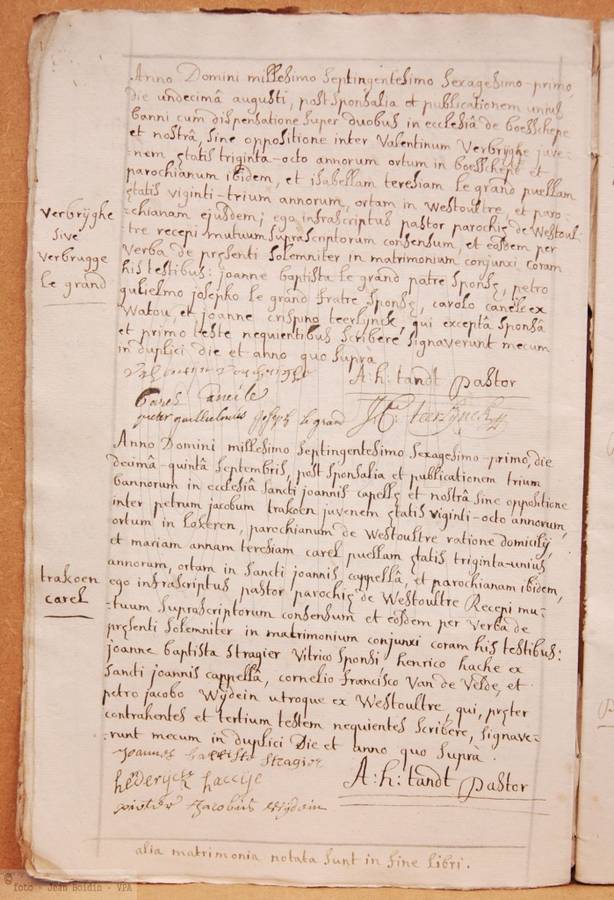 Anno Domini millesimo septingentesimo sexagesimo-primo,
die undecimâ augusti, post sponsalia et publicationem unius
banni cum dispensatione super duobus in ecclesiâ de boesschepe
et nostrâ, sine oppositione inter Valentinum Verbryghe juve-
-nem ętatis triginta-octo annorum ortum in boesschepe et
parochianum ibidem, et isabellam teresiam le grand puellam
ętatis viginti-trium annorum, ortam in Westoultre, et paro-
-chianam ejusdem; ego infrascriptus pastor parochię de Westoul-
tre recepi mutuum suprascriptorum consensum, et eosdem per
Verba de pręsenti solemniter in matrimonium conjunxi coram
his testibus: joanne baptista le grand patre sponsę, petro
gulielmo josepho le grand fratre sponsę, carolo caneele ex
Watou et joanne crispino teerlynck, qui exceptâ sponsâ
et primo teste nequientibus scribere signaverunt mecum
in duplici die et anno quo suprà
verbrÿghe
sive
verbrugge
le grand
A: h: tandt pastor
Carel Caneile
pieter guillielmus Joseph le grand
J C teerlÿnck
Anno Domini millesimo septingentesimo sexagesimo-primo, die
decimâ-quintâ septembris, post sponsalia et publicationem trium
bannorum in ecclesiâ sancti joannis capellę et nostrâ sine oppositione
inter petrum jacobum trakoen juvenem ętatis viginti-octo annorum,
ortum in lokeren, parochianum de Westoultre ratione domicilij,
et mariam annam teresiam carel puellam ętatis triginta-unius
annorum, ortam in sancti joannis cappellâ, et parochianam ibidem,
ego infrascriptus pastor parochię de Westoultre Recepi mu-
-tuum suprascriptorum consensum et eosdem per verba de
pręsenti solemniter in matrimonium conjunxi coram his testibus:
joanne baptista stragier vitrico sponsi, henrico hache ex
sancti joannis cappellâ, cornelio francisco Van de Velde, et
petro jacobo Wÿdein utroque ex Westoultre, qui, pręter
contrahentes et tertium testem nequientes scribere, signave-
-runt mecum in duplici Die et anno quo suprà.
trakoen
carel
Joannes baptiste stragier
henderÿck haccÿe
pieter Jacobus Wÿdein
A: h: tandt pastor
alia matrimonia notata sunt in fine libri.
© foto - Jean Goldin - VPA